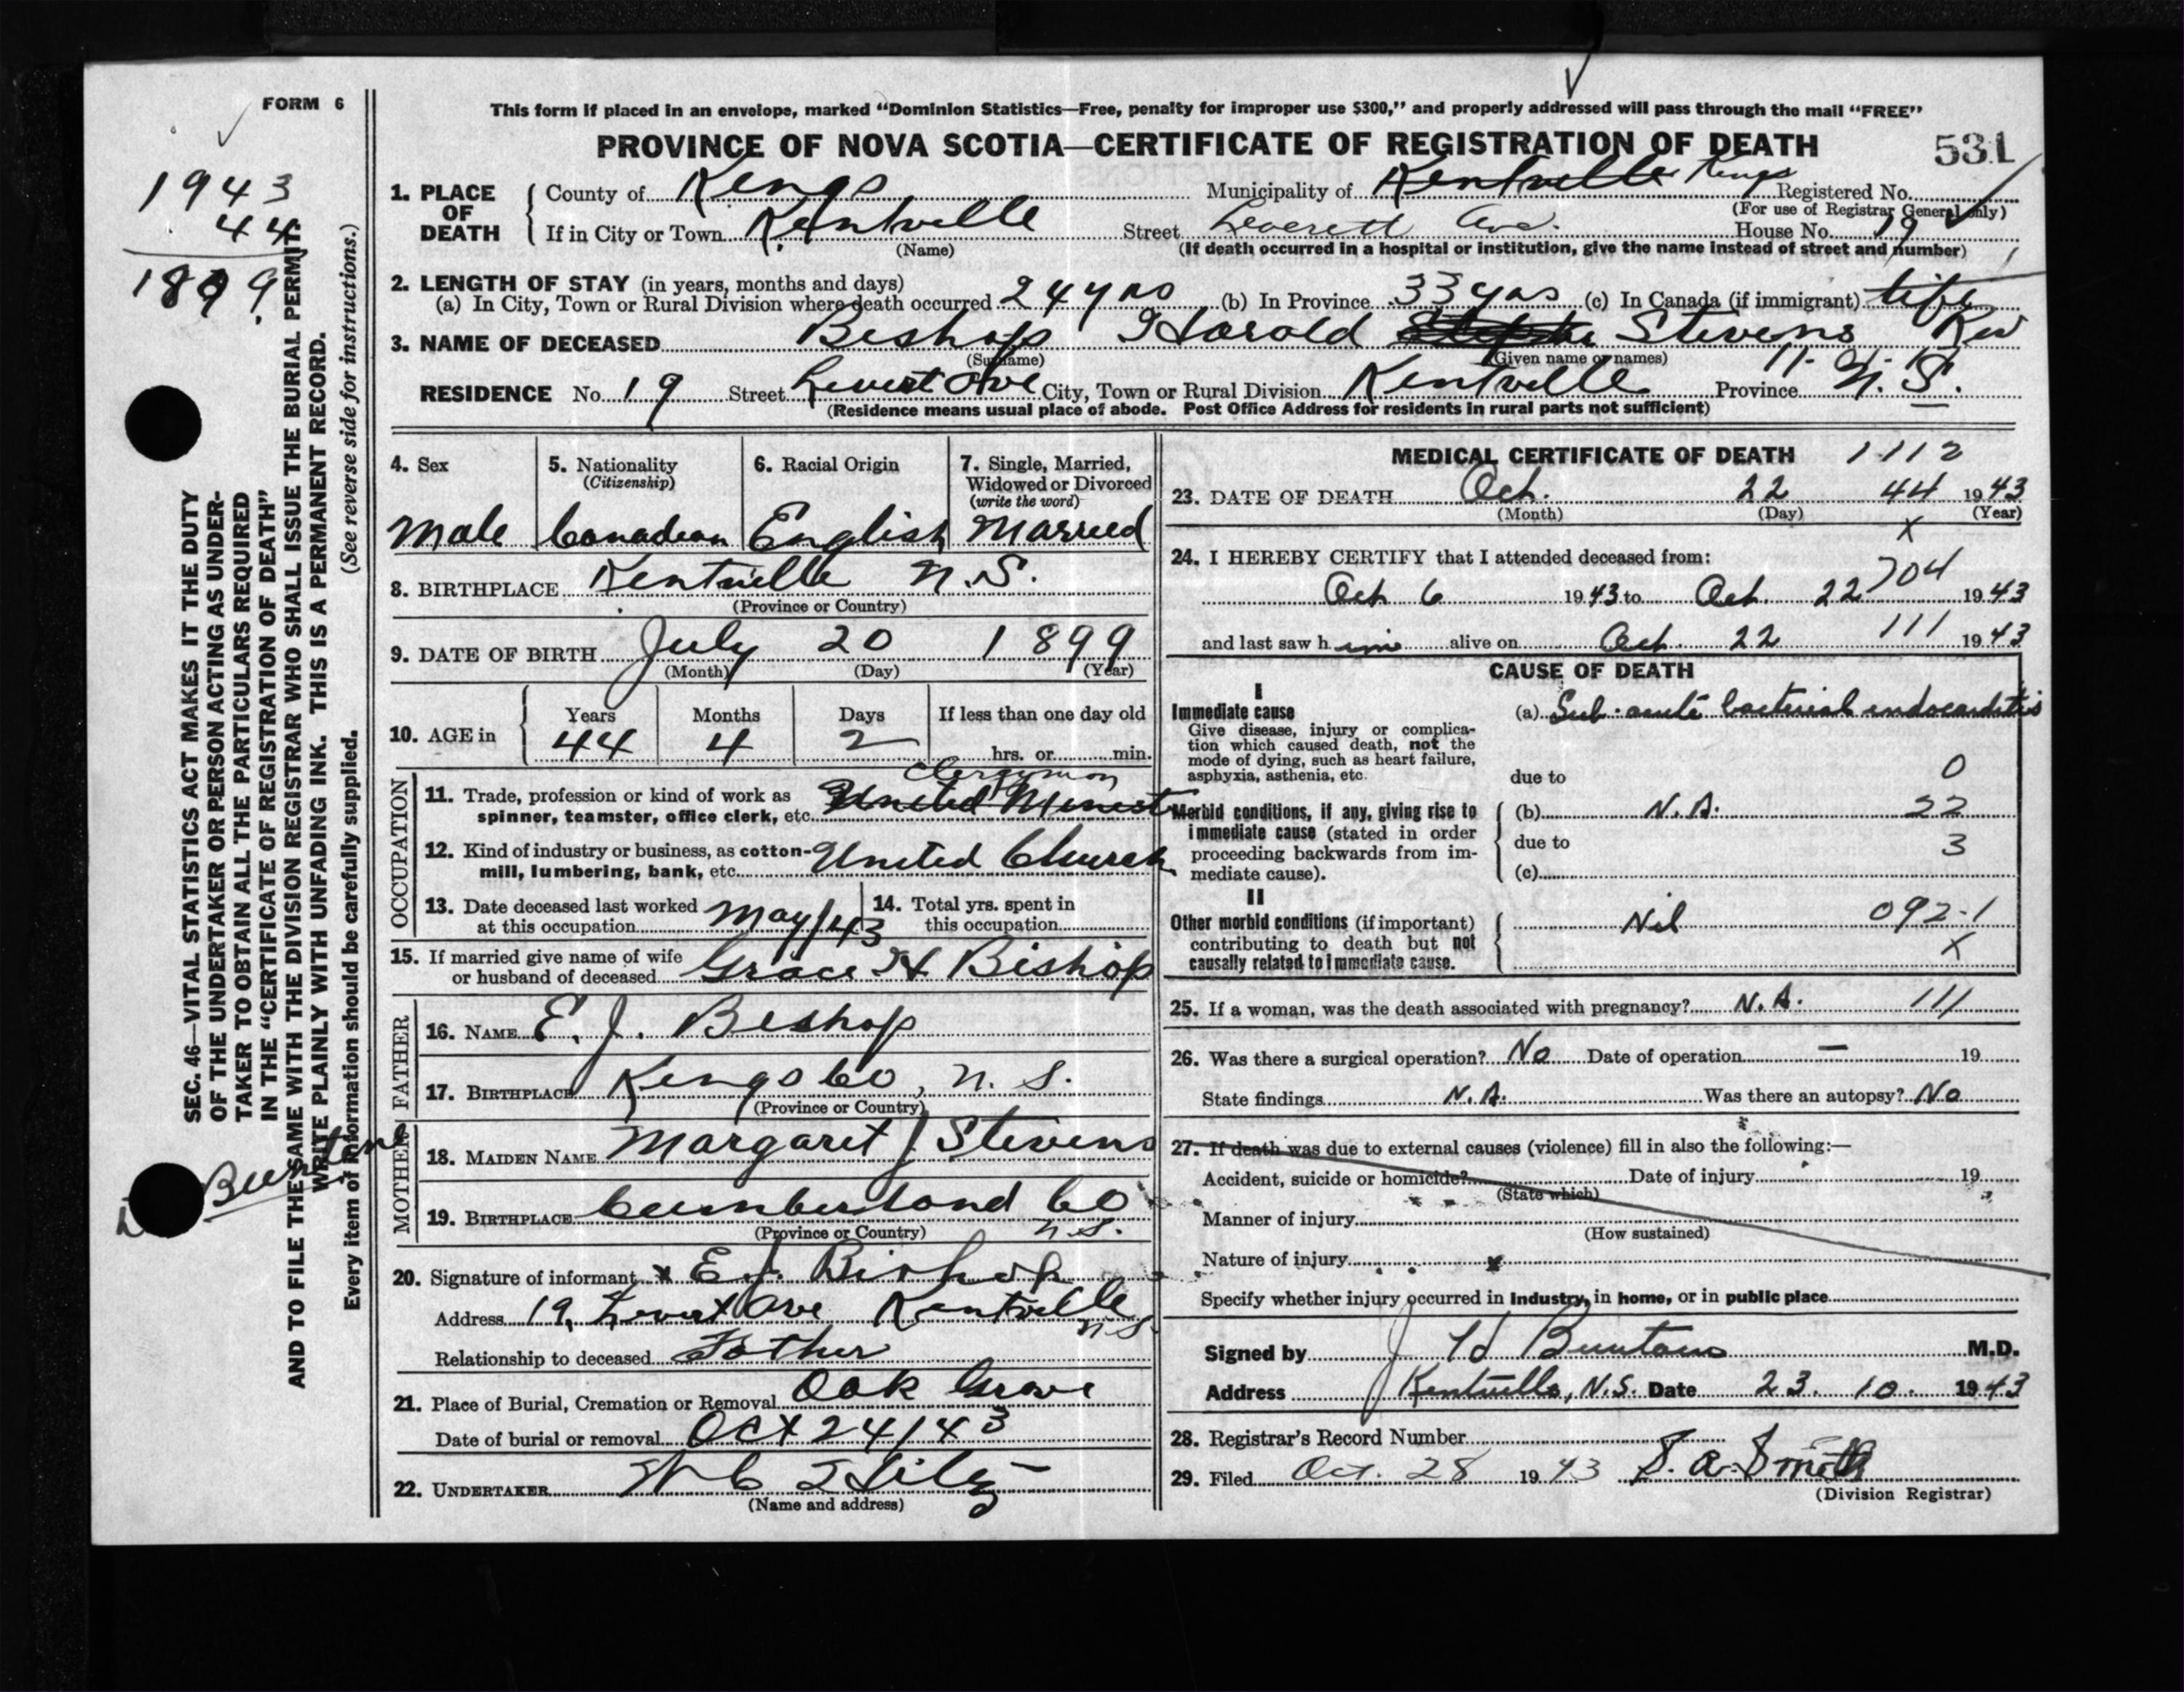 FORM 6
This form if placed in an envelope, marked “Dominion Statistics—Free, penalty for improper use $300,” and properly addressed will pass through the mail “FREE”
PROVINCE OF NOVA SCOTIA—CERTIFICATE OF REGISTRATION OF DEATH
531
1943
44
1899
1. PLACE OF DEATH
County of Kings
Municipality of Kentville Kings Registered No.
(For use of Registrar General only)
If in City or Town Kentville Street Leverett Ave. House No. 19
(Name)
(If death occurred in a hospital or institution, give the name instead of street and number)
2. LENGTH OF STAY (in years, months and days)
(a) In City, Town or Rural Division where death occurred 24 yrs (b) In Province 33 yrs (c) In Canada (if immigrant) life
3. NAME OF DECEASED Bishop Harold Stevens Rev
(Surname) (Given name or names)
RESIDENCE No. 19 Street Levert Ave City, Town or Rural Division Kentville Province N. S.
(Residence means usual place of abode. Post Office Address for residents in rural parts not sufficient)
4. Sex
Male
5. Nationality
(Citizenship)
Canadian
6. Racial Origin
English
7. Single, Married,
Widowed or Divorced
(write the word)
Married
8. BIRTHPLACE Kentville N.S.
(Province or Country)
9. DATE OF BIRTH July 20 1899
(Month) (Day) (Year)
10. AGE in
Years Months Days If less than one day old
44 4 2 hrs. or min.
OCCUPATION
Clergyman
11. Trade, profession or kind of work as
spinner, teamster, office clerk, etc. United Minist
12. Kind of industry or business, as cotton-
mill, lumbering, bank, etc. United Church
13. Date deceased last worked
at this occupation May/43
14. Total yrs. spent in
this occupation
15. If married give name of wife
or husband of deceased Grace H Bishop
FATHER
16. NAME E. J. Bishop
17. BIRTHPLACE Kings Co, N. S.
(Province or Country)
MOTHER
18. MAIDEN NAME Margaret J Stevens
19. BIRTHPLACE Cumberland Co
(Province or Country) N.S.
20. Signature of informant x E. J. Bishop
Address 19, Levert Ave Kentville
N S.
Relationship to deceased Father
21. Place of Burial, Cremation or Removal Oak Grove
Date of burial or removal Oct 24/43
22. UNDERTAKER
(Name and address)
MEDICAL CERTIFICATE OF DEATH 1112
23. DATE OF DEATH Oct. 22 44 1943
(Month) (Day) (Year)
x
24. I HEREBY CERTIFY that I attended deceased from:
704
Oct 6 1943 to Oct. 22 1943
and last saw him alive on Oct. 22 111 1943
CAUSE OF DEATH
I
Immediate cause
Give disease, injury or complica-
tion which caused death, not the
mode of dying, such as heart failure,
asphyxia, asthenia, etc.
(a) Sub-acute bacterial endocarditis
0
due to
Morbid conditions, if any, giving rise to
immediate cause (stated in order
proceeding backwards from im-
mediate cause).
(b) N.A. 22
due to 3
(c)
II
Other morbid conditions (if important)
contributing to death but not
causally related to immediate cause.
Nil 092-1
X
25. If a woman, was the death associated with pregnancy? N.A. 111
26. Was there a surgical operation? No Date of operation — 19
State findings N.A. Was there an autopsy? No
27. If death was due to external causes (violence) fill in also the following:—
Accident, suicide or homicide? Date of injury 19
(State which)
Manner of injury
(How sustained)
Nature of injury
Specify whether injury occurred in Industry, in home, or in public place
Signed by M.D.
Address Kentville, N.S. Date 23. 10. 1943
28. Registrar's Record Number
29. Filed Oct. 28 1943 S. A. Smith
(Division Registrar)
SEC. 46—VITAL STATISTICS ACT MAKES IT THE DUTY
OF THE UNDERTAKER OR PERSON ACTING AS UNDER-
TAKER TO OBTAIN ALL THE PARTICULARS REQUIRED
IN THE “CERTIFICATE OF REGISTRATION OF DEATH”
AND TO FILE THE SAME WITH THE DIVISION REGISTRAR WHO SHALL ISSUE THE BURIAL PERMIT.
WRITE PLAINLY WITH UNFADING INK. THIS IS A PERMANENT RECORD.
Every item of information should be carefully supplied. (See reverse side for instructions.)